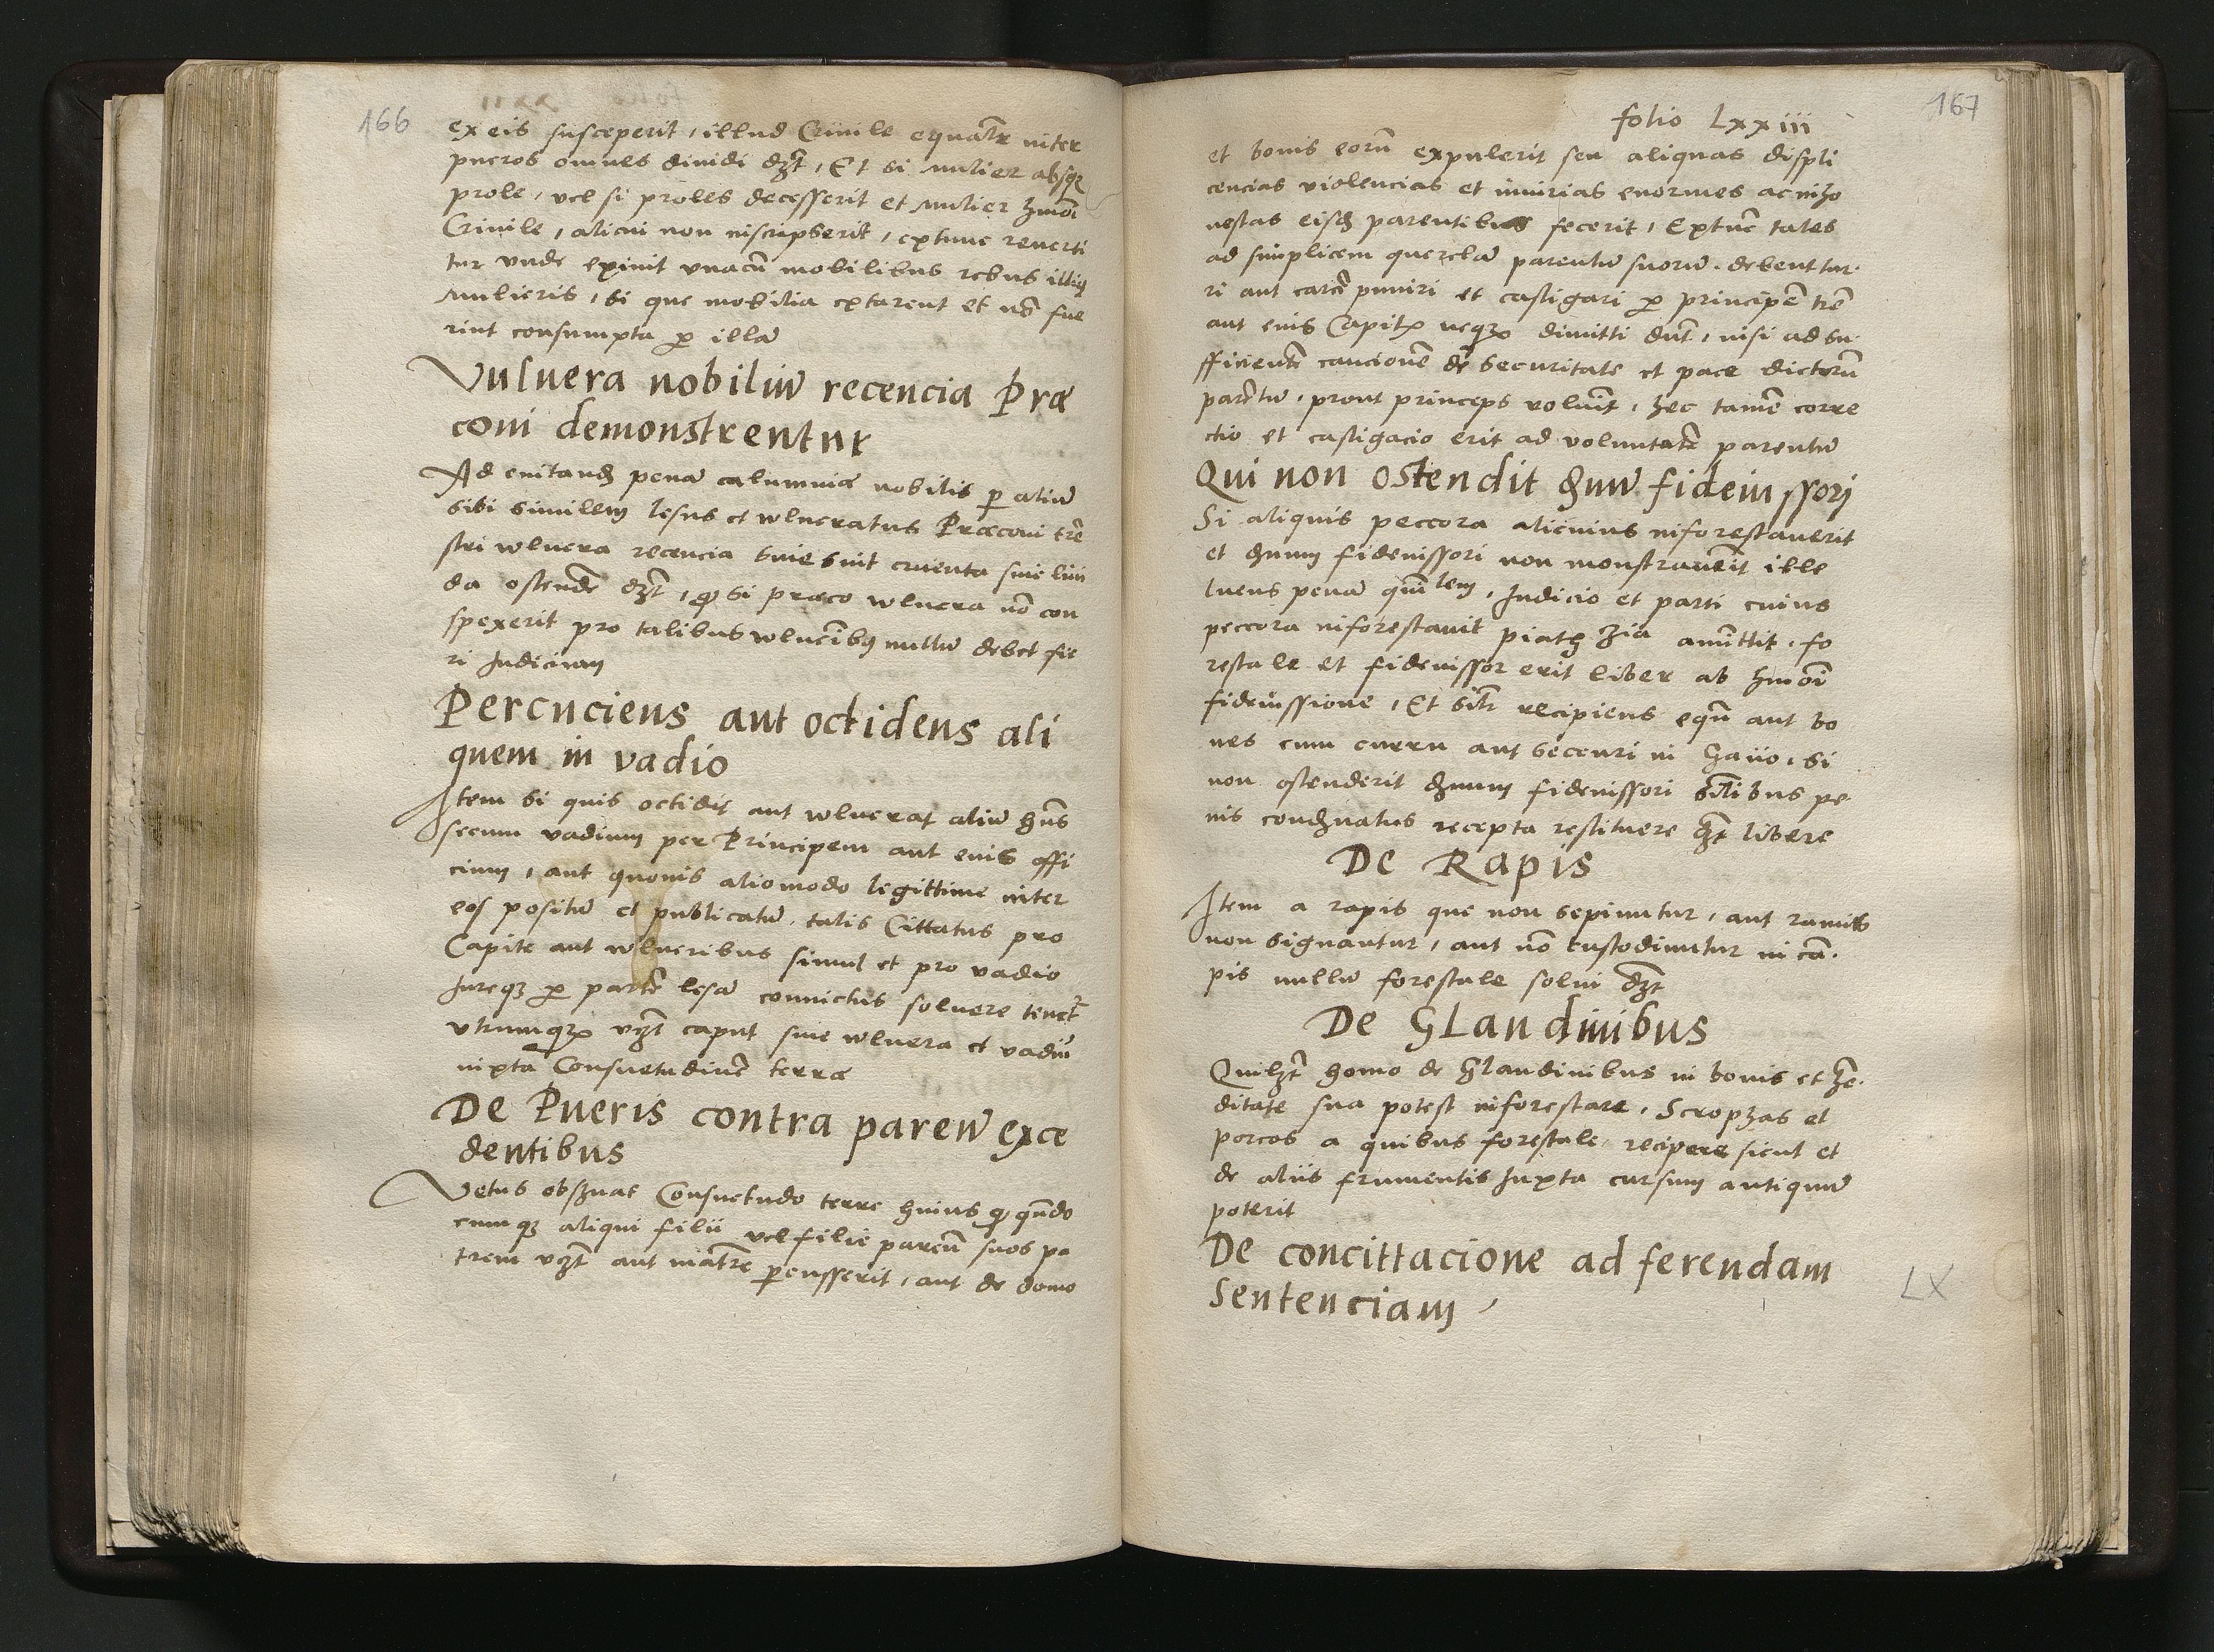 166
ex eis susceperit, illud Crinile equalr̃ inter
pueros omnes dividi dʒt̃, Et si mulier absqʒ
prole, vel si proles decesserit et mulier hm̃oi
Crinile, alicui non inscripserit, extunc reverti
tur unde exivit unacũ mobilibus rebus illiꝯ
mulieris, si que mobilia extarent et nõ fue
rint consumpta ꝑ illã
Vulnera nobiliũ recencia Præ
coni demonstrentur
Ad evitandʒ penã calumniæ nobilis ꝑ aliũ
sibi similem lesus et wlneratus Præconi tre͂
stri wlnera recencia sive sint cruenta sive livi
da ostende͂ dʒt̃, qꝫ si præco wlnera nõ con
spexerit pro talibus wlneribꝯ nullũ debet fie
ri Judicium
Percuciens aut occidens ali
quem in vadio
Item si quis occidit aut wlnerat aliũ hñs
secum vadium per Principem aut eius offi
cium, aut quovis aliomodo legittime inter
eos positũ et publicatũ. talis Cittatus pro
Capite aut wlneribus simul et pro vadio
Jureqʒ ꝑ parte͂ lesã convictus solvere tenet͂
utrumqʒ vʒt̃ caput sive wlnera et vadiũ
iuxta Consuetudine͂ terræ
De Pueris contra parentũ exce
dentibus
Vetus obsʒvat Consuetudo terre huius qꝫ qñdo
cumqʒ aliqui filii vel filie parentũ suos pa
trem vʒt̃ aut matre͂ ꝑcusserit, aut de domo
folio Lxxiii
167
et bonis eorũ expulerit seu aliquas displi
cencias violencias et iniurias enormes ac inho
nestas eisdʒ parentibus fecerit, Extunc tales
ad simplicem querelã parentũ suorũ. debent tur.
ri aut carce͂ puniri et castigari ꝑ principe͂ tre͂
aut eius Capit͂ neqʒ dimitti dñt, nisi ad su.
fficiente͂ caucione͂ de securitate et pace dictorũ
parentũ, prout princeps volueri͂t, hec tame͂ corre
ctio et castigacio erit ad voluntate͂ parentũ
Qui non ostendit dʒnũ fideiussori
Si aliquis peccora alicuius inforestaverit
et dʒnum fideiussori non monstraverit ille
luens penã qui͂lem, Judicio et parti cuius
peccora inforestavit piatʒ Zia amittit. fo
restale et fideiussor erit liber ab hm̃oi
fideiussione, Et silr͂ recipiens equũ aut bo
ves cum curru aut securi in Gaiio, si
non ostenderit dʒnum fideiussori silibus pe.
nis condʒnatus recepta restituere dʒt̃ libere
De Rapis
Item a rapis que non sepiuntur, aut ramis
non signantur, aut nõ custodiuntur in cã.
pis nullũ forestale solvi dʒt̃
De GLandinibus
Quilʒt̃ homo de Glandinibus in bonis et he͂.
ditate sua potest inforestare, Scrophas et
porcos a quibus forestale, recipere sicut et
de aliis frumentis Juxta cursum antiquũ
poterit
De concittacione ad ferendam
Sentenciam
LX